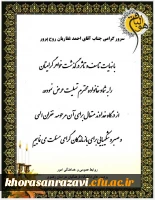 سرور گرامی جناب آقای احمد غفاریان روح پرور
با نهایت تاسف و تاثر درگذشت خواهر گرامیتان
را به شما و خانواده محترم تسلیت عرض نموده
از درگاه خداوند متعال برای آن مرحومه غفران الهی
و صبر و شکیبایی برای بازماندگان گرامی مسئلت می نماییم
khorasanrazavi.ichto.ir